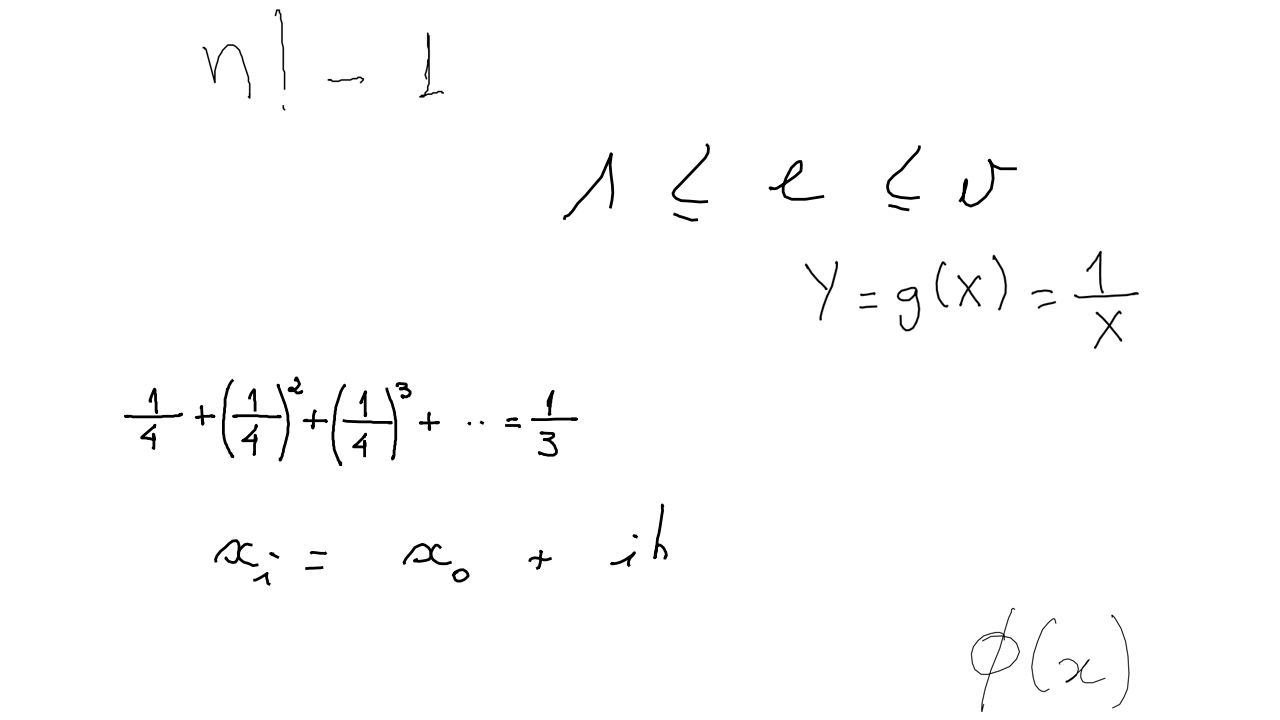 n! - 1
1 ≤ e ≤ v
Y = g(X) = 1/X
1/4 + (1/4)^2 + (1/4)^3 + ·· = 1/3
x_i = x_0 + ih
ϕ(x)